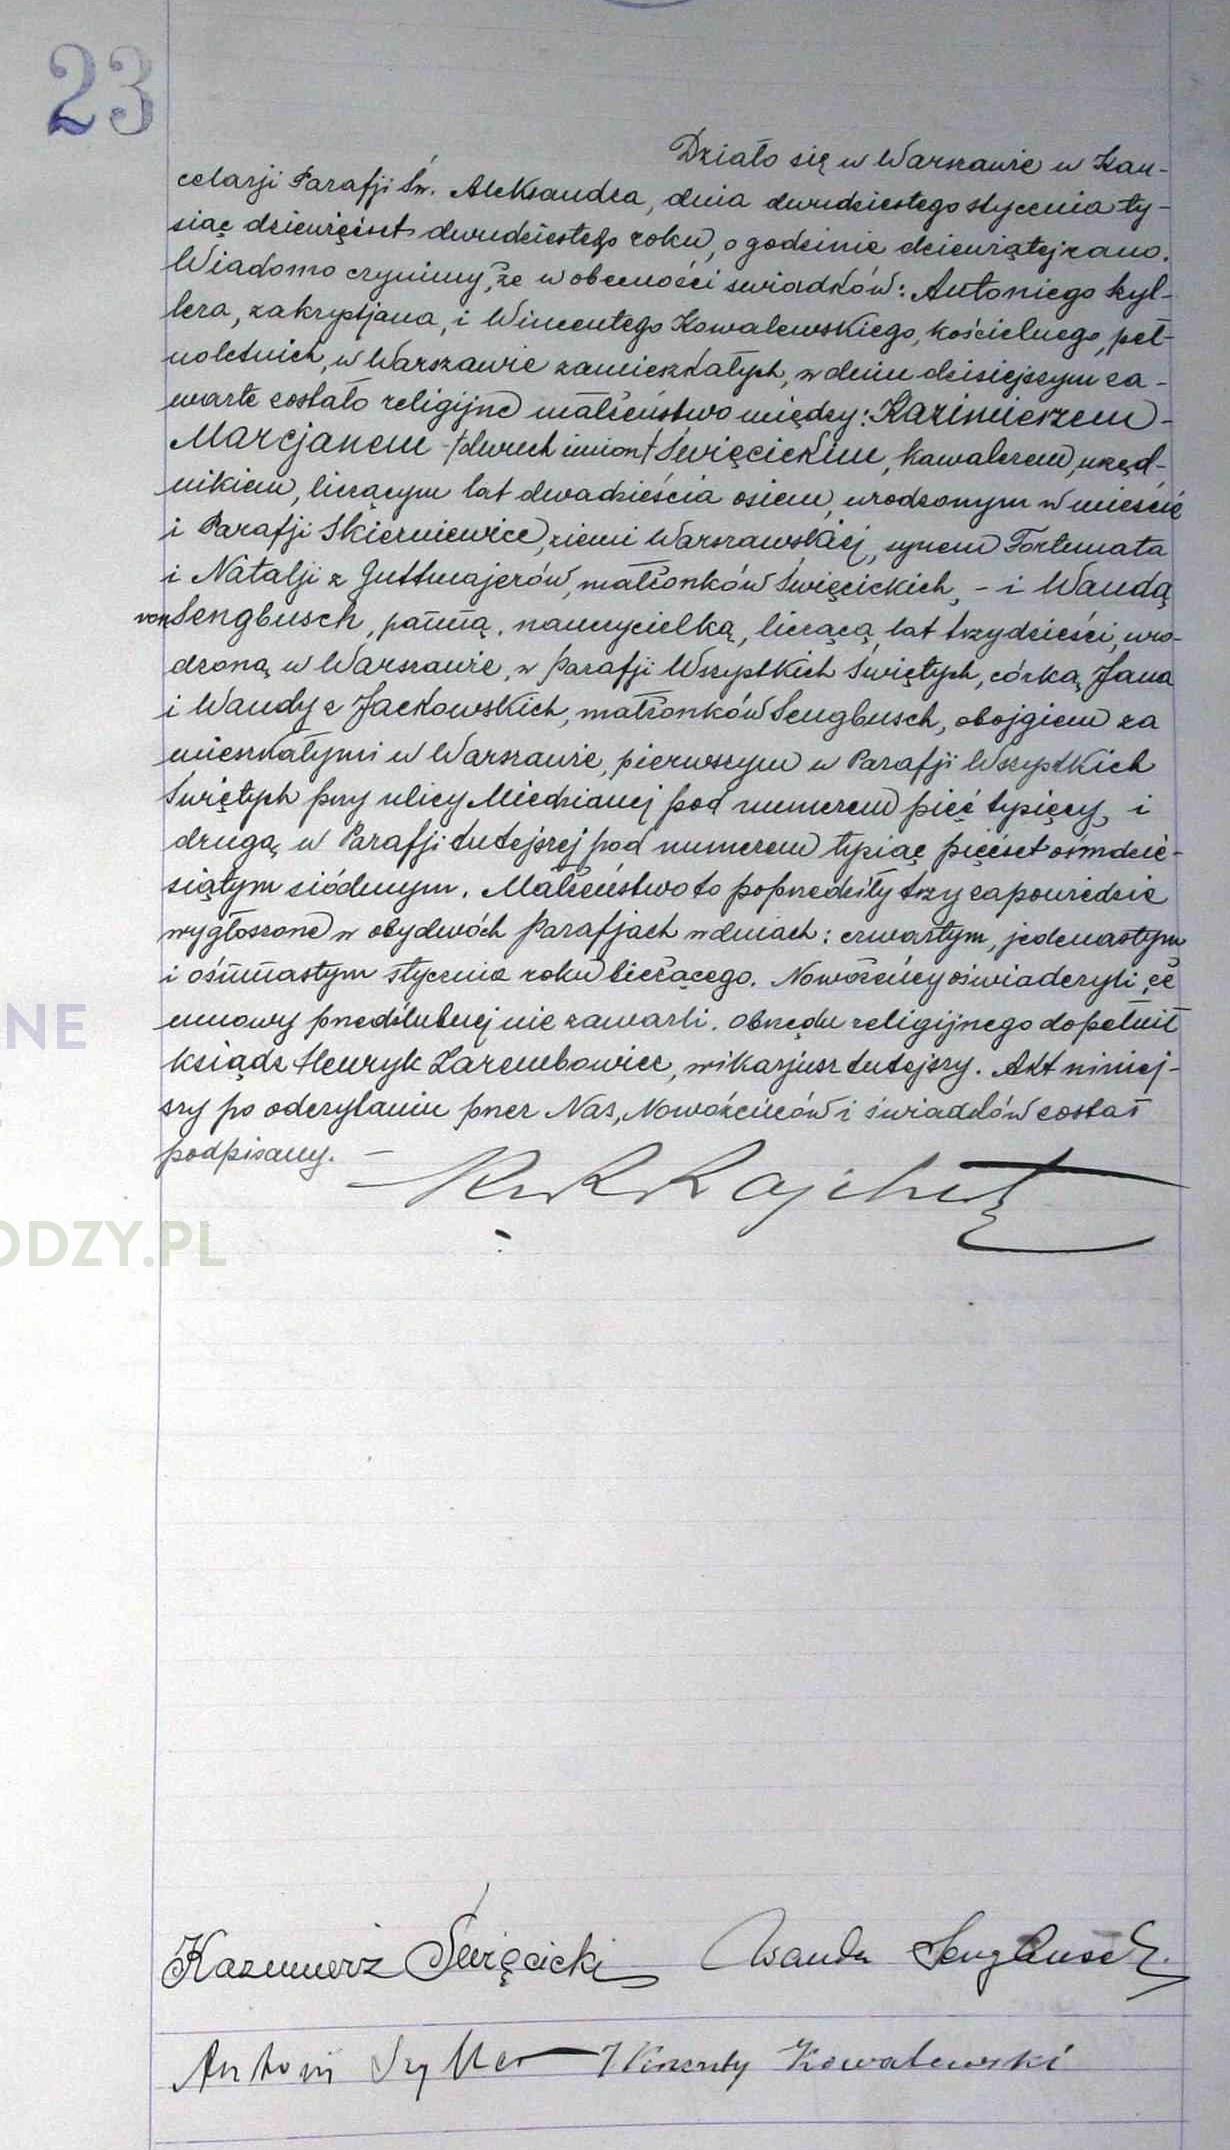 23
Działo się w Warszawie w Kan-
celarji Parafji Św. Aleksandra, dnia dwudziestego stycznia ty-
siąc dziewięćset dwudziestego roku, o godzinie dziewiątej rano.
Wiadomo czynimy, że w obecności świadków: Antoniego Szyl-
lera, zakrystjana, i Wincentego Kowalewskiego, kościelnego, peł-
noletnich, w Warszawie zamieszkałych, w dniu dzisiejszym za-
warte zostało religijne małżeństwo między: Kazimierzem-
Marcjanem -/dwuch imion/ Święcickim, kawalerem, urzęd-
nikiem, liczącym lat dwadzieścia osiem, urodzonym w mieście
i Parafji Skierniewice, ziemi Warszawskiej, synem Fortunata
i Natalji z Guttmajerów, małżonków Święcickich, - i Wandą
von Sengbusch, panną, nauczycielką, liczącą lat trzydzieści, uro-
dzoną w Warszawie, w parafji Wszystkich Świętych, córką Jana
i Wandy z Jackowskich, małżonków Sengbusch, obojgiem za
mieszkałymi w Warszawie, pierwszym w Parafji Wszystkich
Świętych przy ulicy Miedzianej pod numerem pięć tysięcy, i
drugą w Parafji tutejszej pod numerem tysiąc pięćset osmdzie-
siątym siódmym. Małżeństwo to poprzedziły trzy zapowiedzie
wygłoszone w obydwóch parafjach w dniach: czwartym, jedenastym
i ośmnastym stycznia roku bieżącego. Nowożeńcy oświadczyli, że
umowy przedślubnej nie zawarli. Obrzędu religijnego dopełnił
ksiądz Henryk Zarembowicz, wikarjusz tutejszy. Akt niniej-
szy po odczytaniu przez Nas, Nowożeńców i świadków został
podpisany. —
Kazimierz Święcicki Wanda Sengbusch
Antoni Szyller Wincenty Kowalewski
NE
ODZY.PL